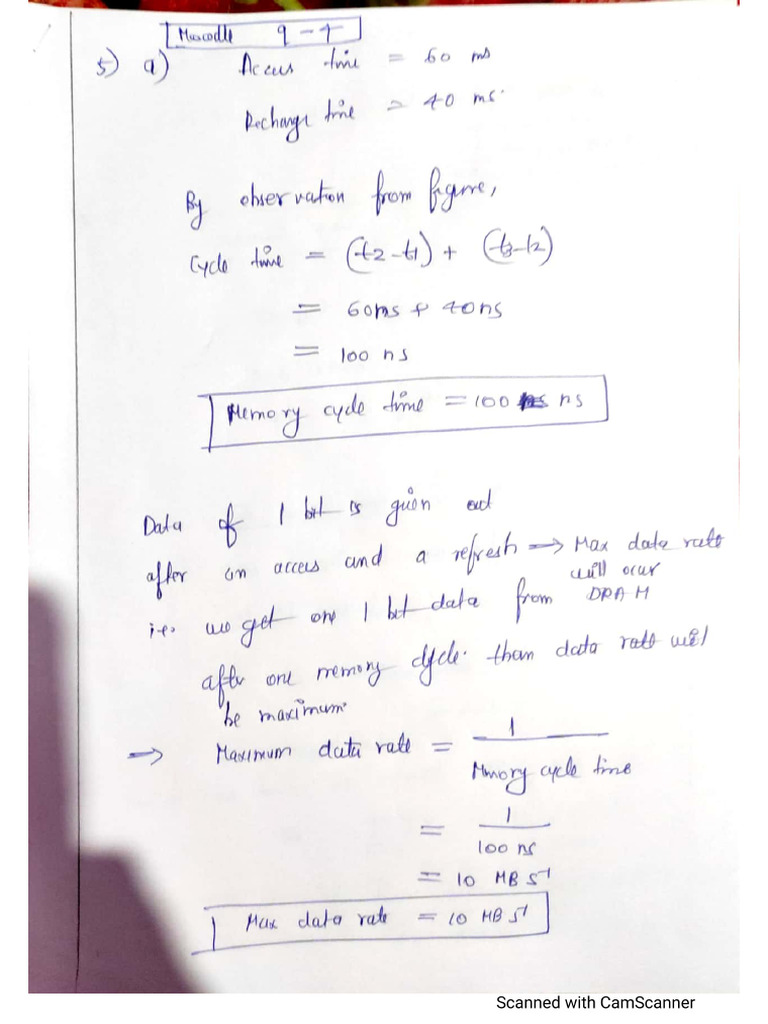 9 - 4
5) a) Access time = 60 ns
Recharge time = 40 ns.
By observation from figure,
Cycle time = (t2-t1) + (t3-t2)
= 60ns + 40ns
= 100 ns
Memory cycle time = 100 ns
Data of 1 bit is given out
after an access and a refresh → Max data rate
will occur
i.e. we get one 1 bit data from DRAM
after one memory cycle. than data rate will
be maximum.
⇒ Maximum data rate = 1
Mmory cycle time
= 1
100 ns
= 10 MB s-1
Max data rate = 10 MB s-1
Scanned with CamScanner